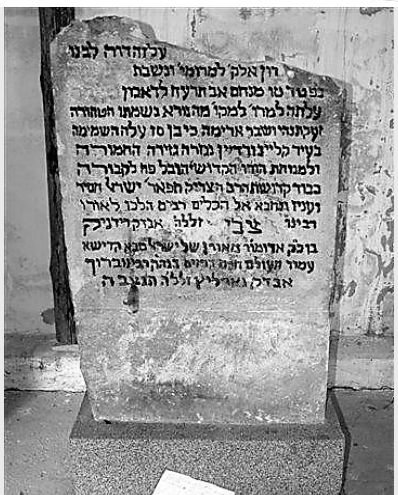 על זה דוה לבנו
ארון אלק' למרומי' ונשבת
נפטר טו מנחם אב תרעח לדאבון
עלתה למרו' למקו' מהנורא נשמתו הטהורה
זעקתנו ושבר ארימה כי בן סז עלה השמימה
בעיר קליינורדיין נגזרה גזירה החמורה
ולמנוחת הודו הקדוש' הובל פה לקבורה
כבוד קדושת הרב הצדיק תפאר' ישראל חסיד
ועניו ונחבא אל הכלים רבים הלכו לאורו
רבינו צבי זללה אבדק רידניק
בוכק אדומור מאורן של ישראל סבא קדישא
עמוד העולם רבינו ברוך
אבדק גארליץ זללה תנצבה